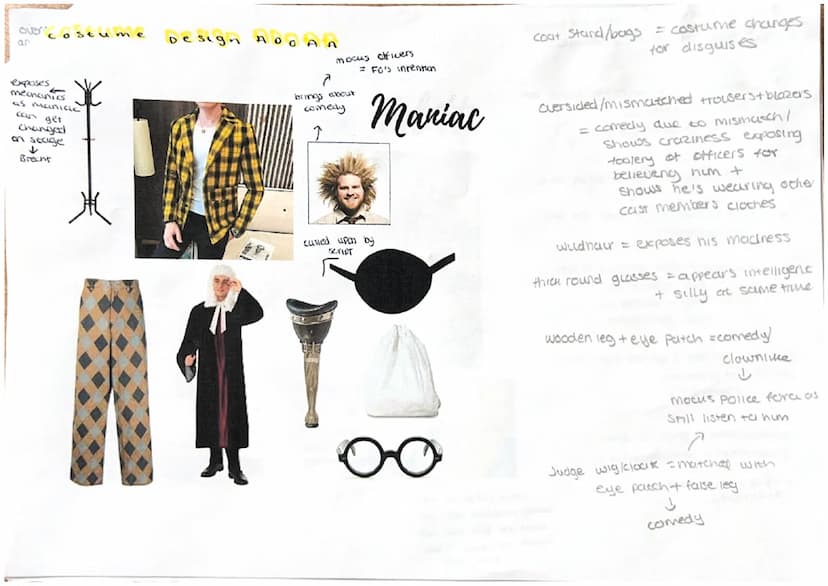 over
an
COSTUME DESIGN ADOAA
mocks officers
= FO's intention
brings about
comedy
Maniac
exposes
mechanics
as maniac
can get
changed
on stage
Brecht
called upon by
script
coat stand/bags = costume changes
for disguises
oversided/mismatched trousers+blazers
= comedy due to mismatch/
shows craziness exposing
foolery of officers for
believing him +
shows he's wearing other
cast members clothes
wildhair = exposes his madness
thick round glasses = appears intelligent
+ silly at same time
wooden leg + eye patch = comedy/
clownlike
mocks police force as
still listen to him
Judge wig/cloak = matched with
eye patch + false leg
comedy